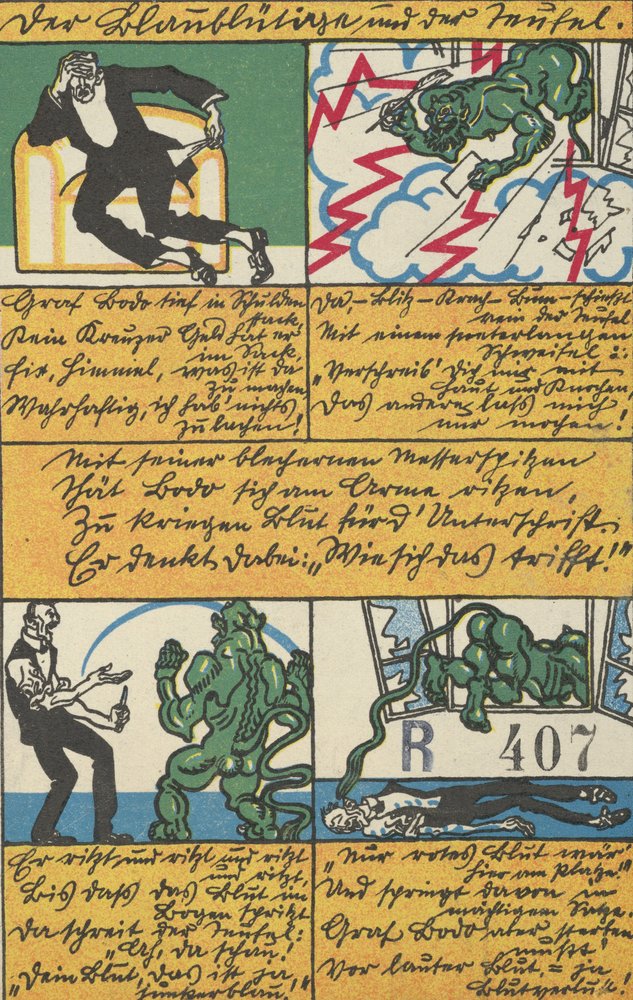 Der Blaublütige und der Teufel.
Graf Bodo tief in Schulden
stack'
Kein Kreuzer Geld hat er
im Sack,
Hie, Himmel, was ist da
zu machen
Wahrhaftig, ich hab' nichts
zu lachen!
Da, – Blitz – Krach – Bum – schiesst
rein der Teufel
Mit einem meterlangen
Schweifel
"Verschreib' Dich mir mit
Haut und Knochen,
Das andere lass mich
nur machen!
Mit seiner blechernen Messerspitzen
Thät Bodo sich am Arme ritzen,
Zu kriegen Blut für d' Unterschrift.
Er denkt dabei: „Wie sich das trifft!"
Er ritzt und ritzt und ritzt
und ritzt,
Bis dass das Blut im
Bogen spritzt
Da schreit der Teufel:
„Ah, da schau!
"Dein Blut, das ist ja
junkerblau!"
"Nur rotes Blut wär'
hier am Platze!"
Und springt davon im
mächtigem Satze.
Graf Bodo aber sterben
musst'
Vor lauter Blut = ja
Blutverlust!
R 407